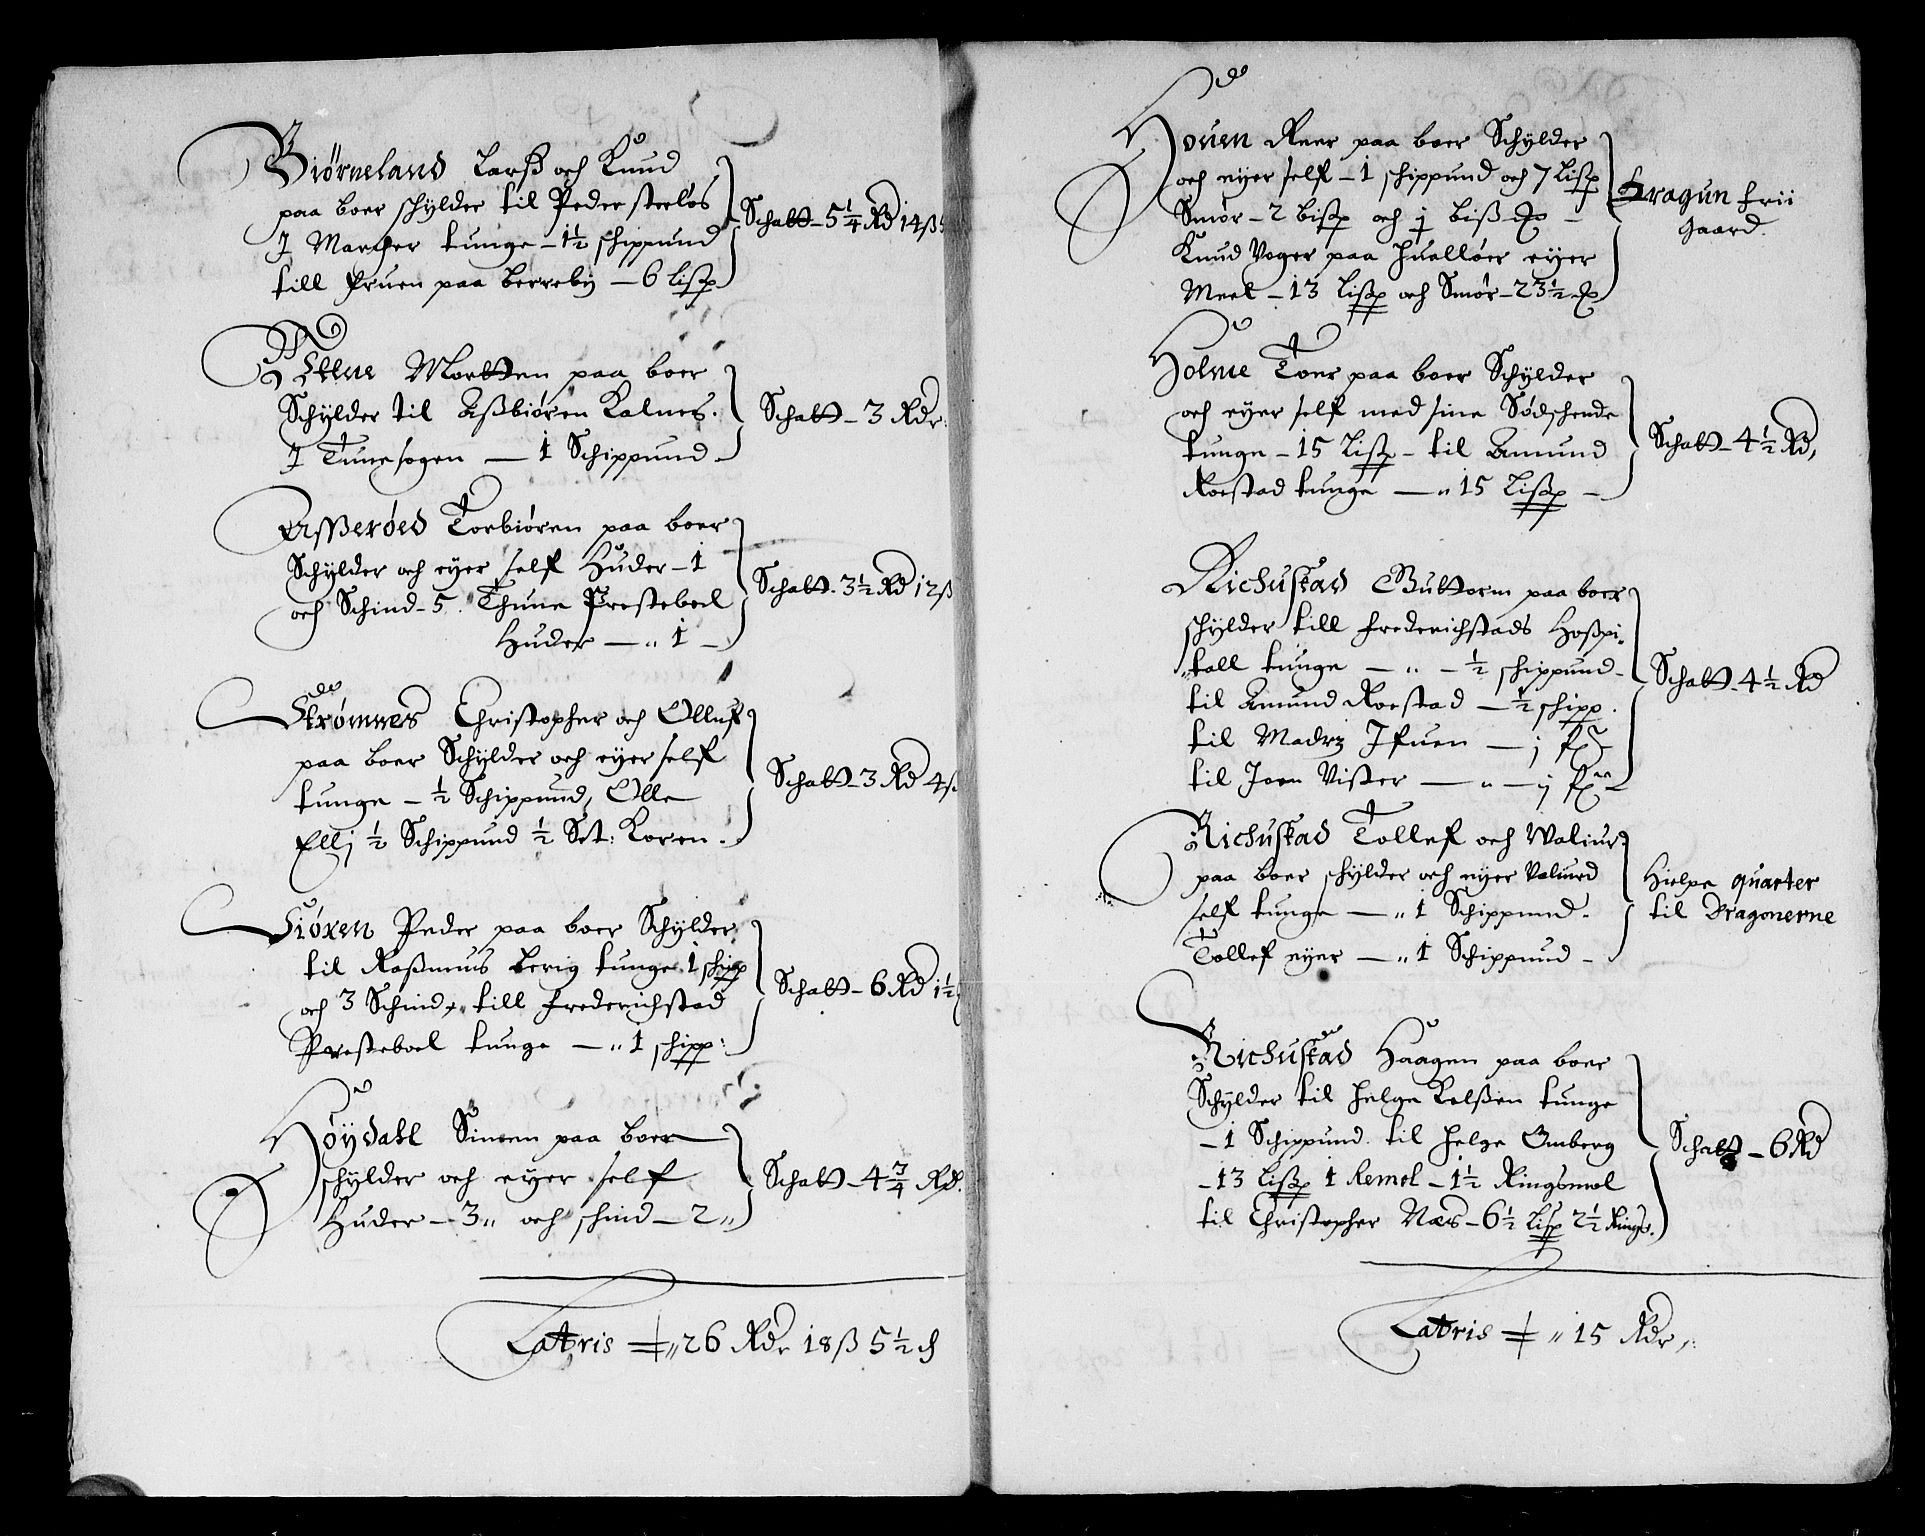 Biørneland Larß och Knud
paa boer schylder til Peder steeløs
J Marcher tunge – 1½ schippund
till Fruen paa berreby – 6 Lißp
Schatt – 5¼ Rd 14 ß
Mortten paa boer
Schylder til Aßbiøren Kalnes.
J Tune sogen — 1 Schippund –
Schatt – 3 Rdr
Asserøed Torbiøren paa boer
Schylder och eyer self Huder – 1
och Schind – 5. Thune Presteboel
Huder — „ 1 –
Schatt. 3½ Rd 12 ß
Strømnes Christopher och Olluf
paa boer Schylder och eyer self
tunge – ½ Schippund, Olle
Ellj ½ Schippund ½ Set: Koren.
Schatt – 3 Rd 4
Peder paa boer Schylder
til Raßmus berig tunge 1 schipp
och 3 Schind, till Frederichstad
Presteboel tunge — „ 1 schipp:
Schatt – 6 Rd 1½
Høydahl Simen paa boer
schylder och eyer self
Huder – 3 „ och schind – 2 „
Schatt – 4¾ Rd.
Lattris „ 26 Rdr 18 ß 5½ d
Houen Reer paa boer Schylder
och eyer self – 1 schippund och 7 Lißp
Smør – 2 bißp och j biß
Knud Voger paa Hualløer eyer
Meel – 13 Lißp och Smør – 23½
Dragun frii
gaard.
Holme Toer paa boer Schylder
och eyer self med sine Sødschende
tunge – 15 Lißp – til Amund
Roestad tunge — „ 15 Lißp –
Schatt – 4½ Rd,
Richustad Guttorm paa boer
schylder till Frederichstads Hoßpi„
„tall tunge — „ – ½ schippund –
til Amund Roestad – ½ schipp.
til Madtz Ifuer — j
til Joen Vister — „ — j
Schatt – 4½ Rd
Richustad Tollef och Waliur
paa boer schylder och eyer Valiurd
self tunge — „ 1 Schippund.
Tollef eyer — „ 1 Schippund –
Hielpe quarter
til Dragonerne
Richustad Haagen paa boer
Schylder til Helge Kelßen tunge
– 1 Schippund. til Helge Omberg
– 13 Lißp 1 Remel – 1½ Ringsmel
til Christopher Næs – 6½ Lißp 2½ Rings.
Schatt – 6 Rd
Lattris „ 15 Rdr